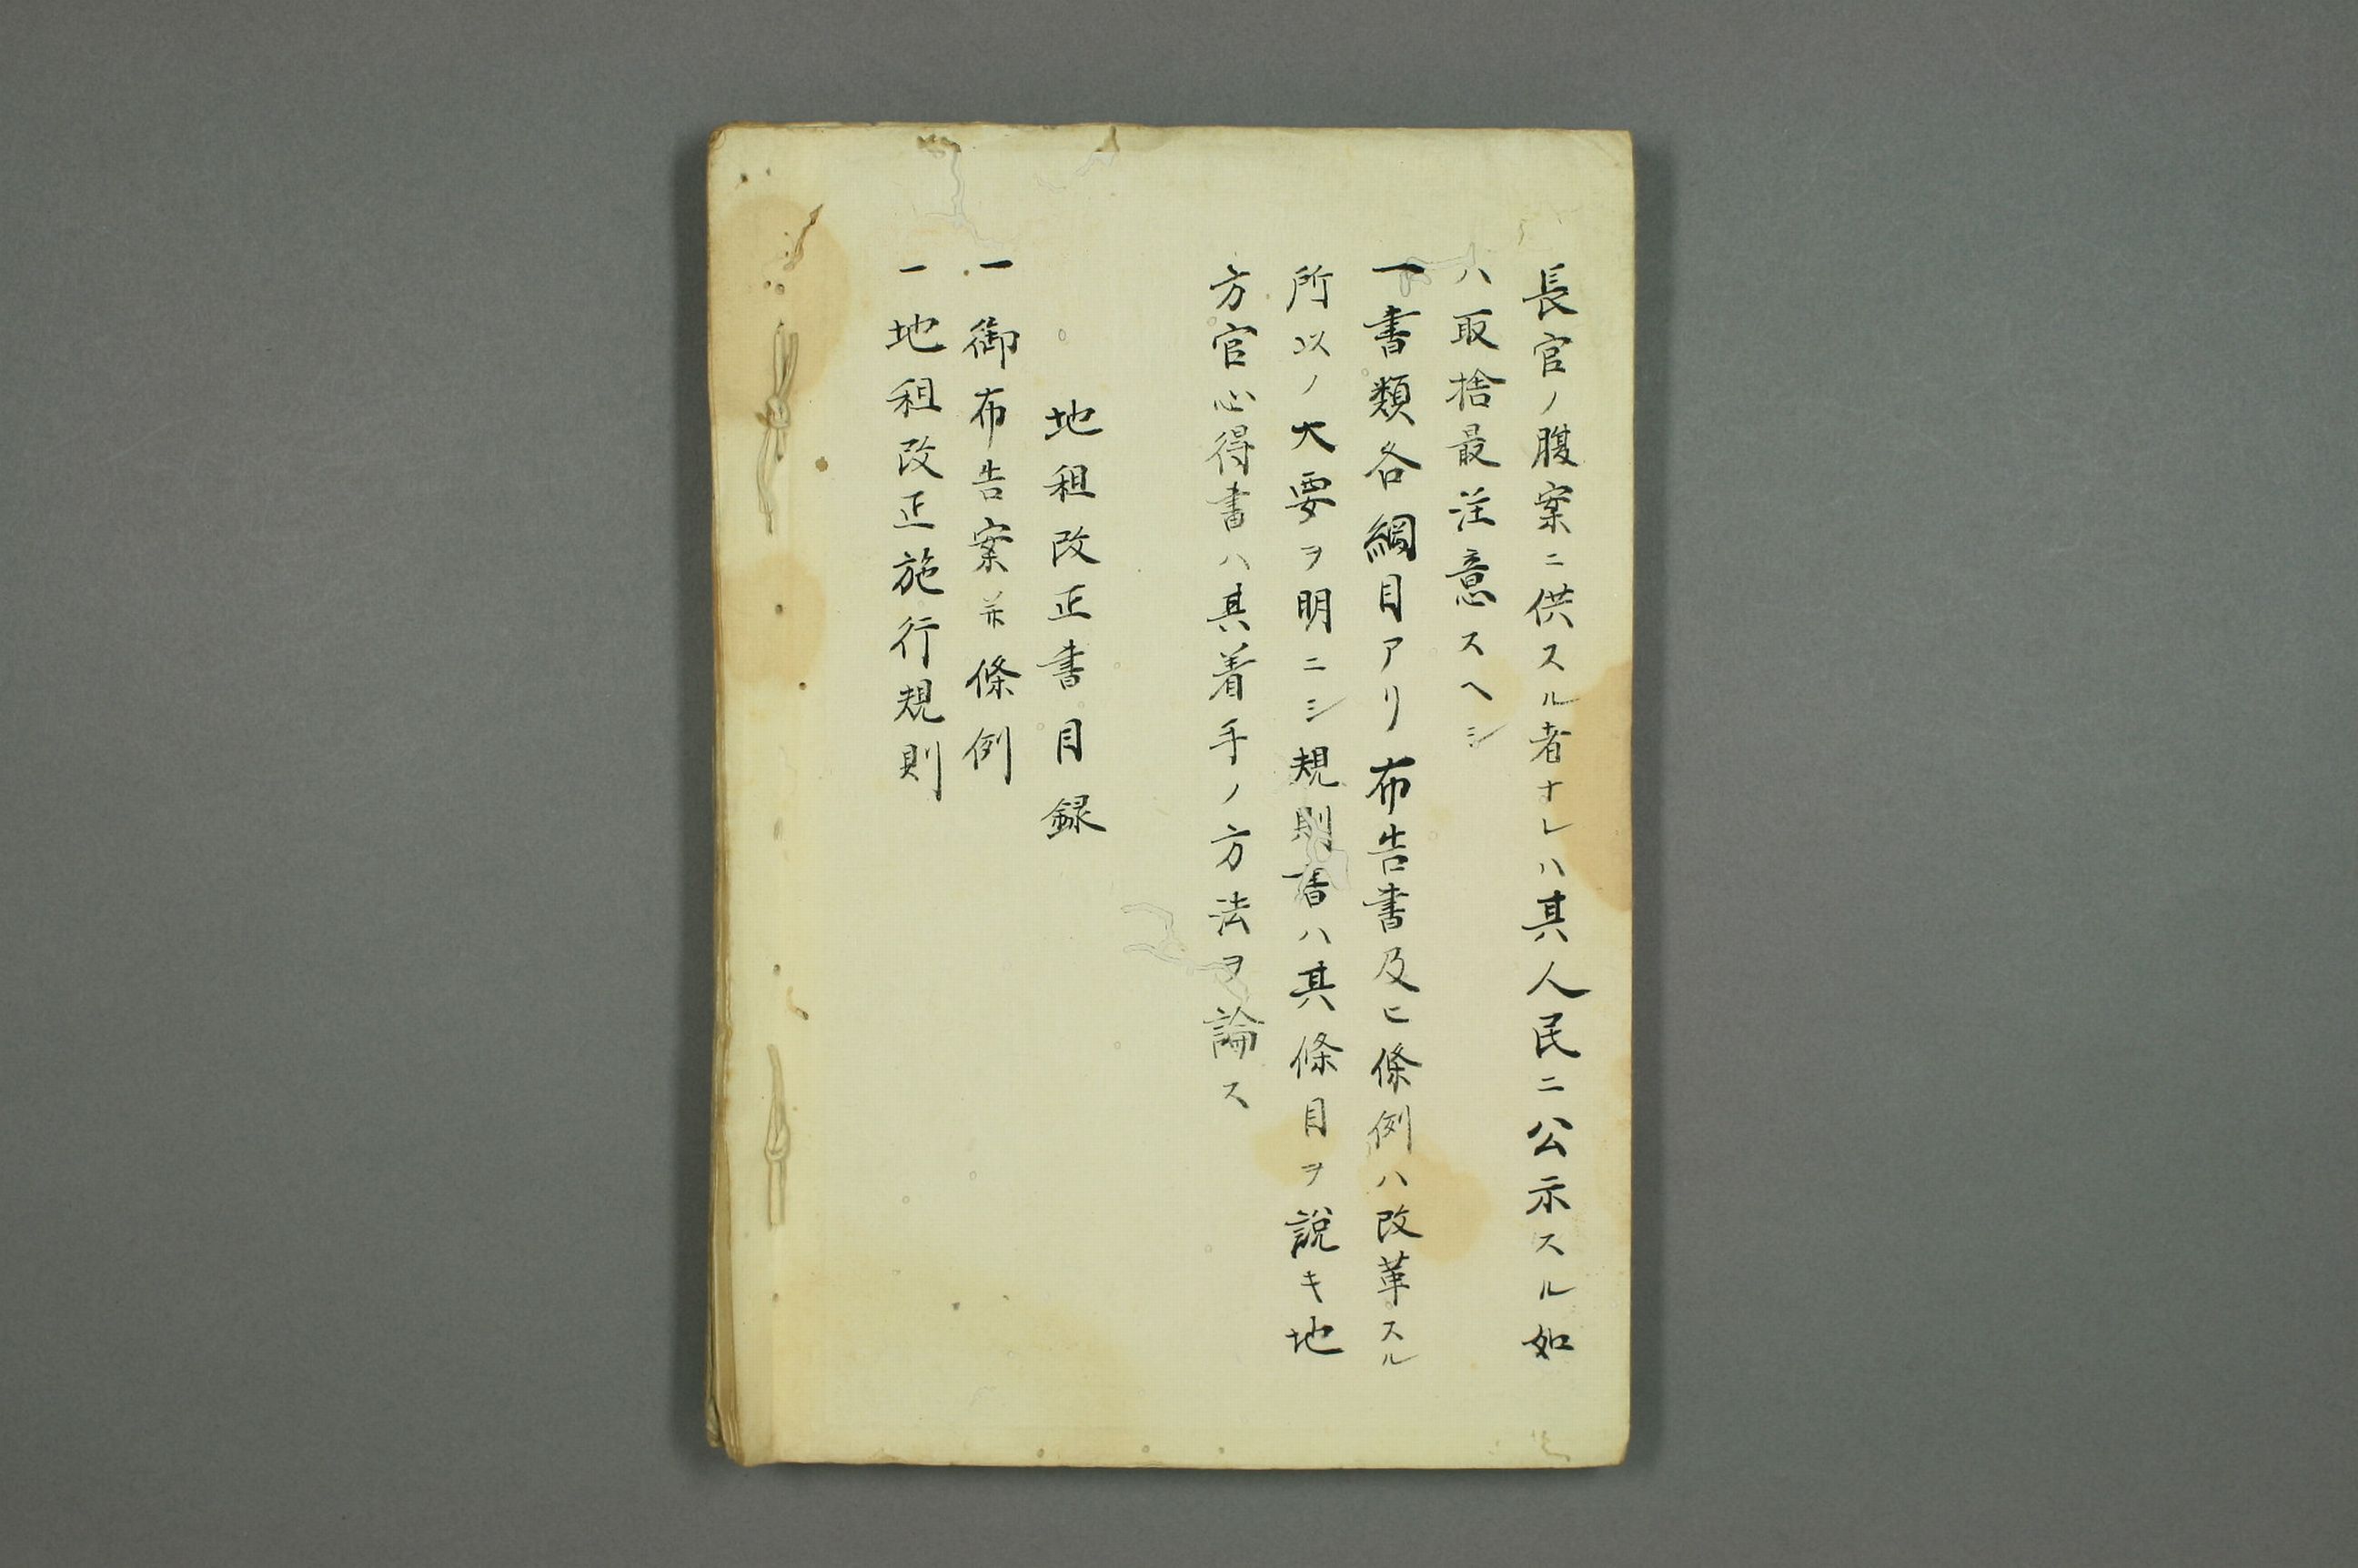 長官ノ腹案ニ供スル者ナレハ其人民ニ公示スル如
ハ取捨最注意スヘシ
一書類各綱目アリ布告書及ヒ條例ハ改革スル
所以ノ大要ヲ明ニシ規則書ハ其條目ヲ説キ地
方官心得書ハ其着手ノ方法ヲ論ス
地租改正書目録
一御布告案并條例
一地租改正施行規則